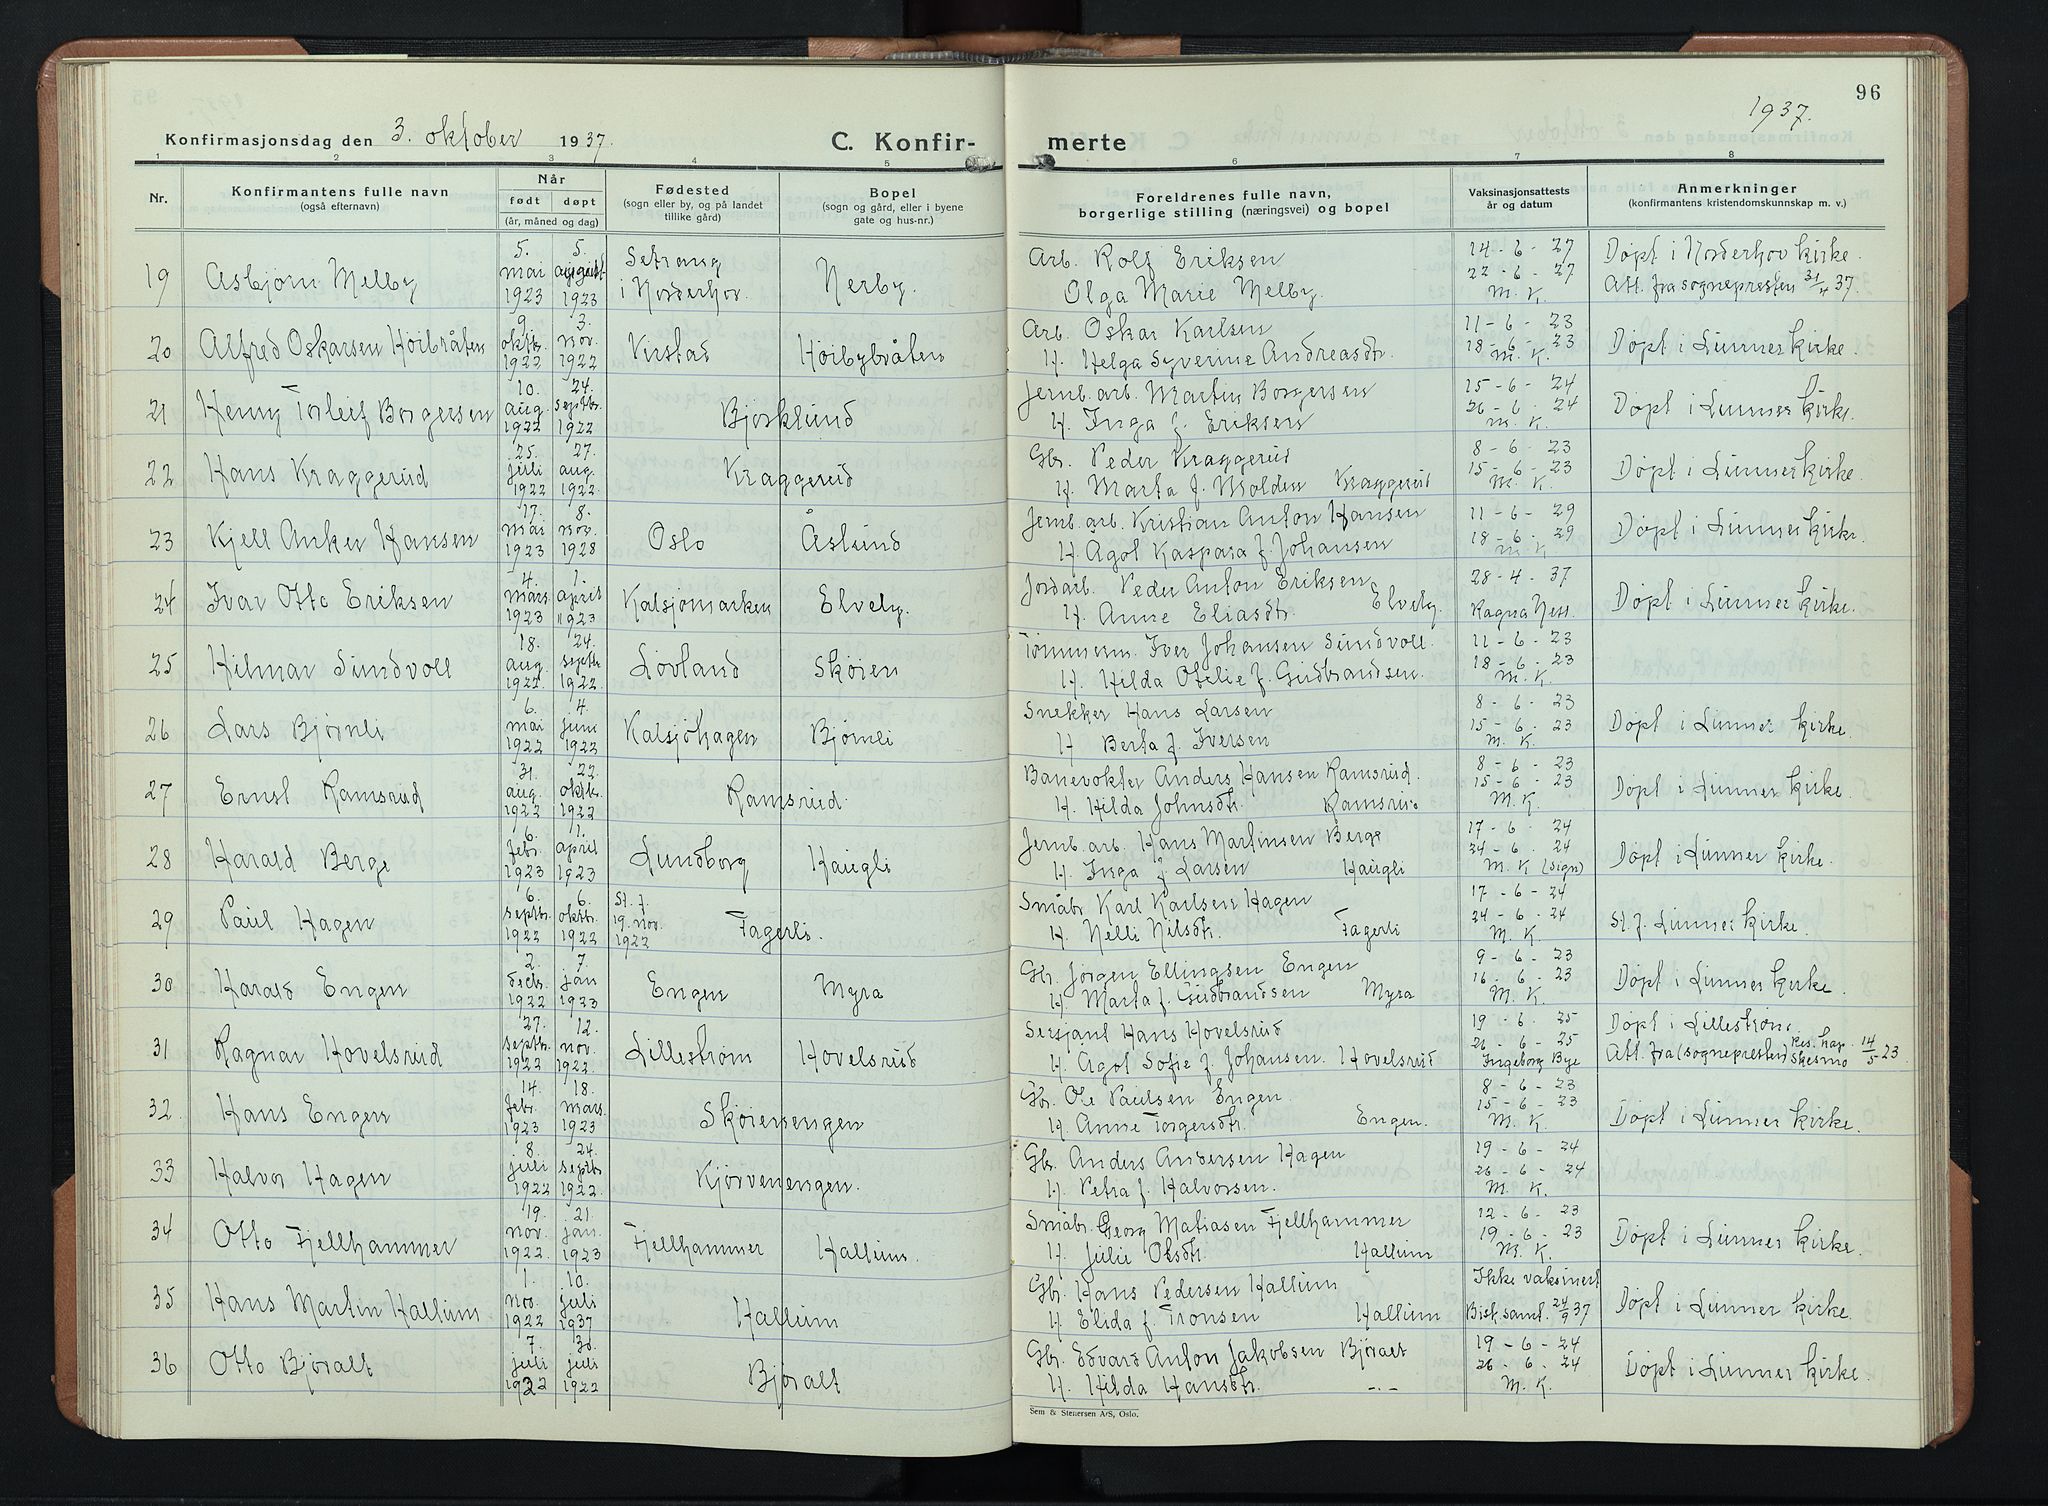 96
1937.
Konfirmasjonsdag den 3. oktober 1937.
C. Konfir-
merte
1 2 3 4 5 6 7 8
Nr.
Konfirmantens fulle navn
(også efternavn)
Når
født døpt
(år, måned og dag)
Fødested
(sogn eller by, og på landet
tillike gård)
Bopel
(sogn og gård, eller i byene
gate og hus-nr.)
Foreldrenes fulle navn,
borgerlige stilling (næringsvei) og bopel
Vaksinasjonsattests
år og datum
Anmerkninger
(konfirmantens kristendomskunnskap m. v.)
19 Asbjørn Melby
5. mai 1923
5. august 1923
Setrang i Norderhov.
Nerby.
Arb. Rolf Eriksen
Olga Marie Melby.
14-6-27
22-6-27
M. K.
Døpt i Norderhov kirke.
Att. fra sognepresten 31/4 37.
20 Alfred Oskarsen Høibråten
9. oktbr. 1922
3. nov. 1922
Virstad
Høibybråten
Arb. Oskar Karlsen
H. Helga Syverine Andreasdtr.
11-6-23
18-6-23
M. K.
Døpt i Lunner kirke.
21 Henny Torleif Borgersen
10. aug. 1922
24. septbr. 1922
Bjørklund
Jernb. arb. Martin Borgersen
H. Inga f. Eriksen
15-6-24
26-6-24
M. K.
Døpt i Lunner kirke.
22 Hans Kraggerud
25. juli 1922
27. aug. 1922.
Kraggerud
Gbr. Peder Kraggerud
H. Marta f. Molden Kraggerud
8-6-23
15-6-23
M. K.
Døpt i Lunner kirke.
23 Kjell Anker Hansen
17. mai 1923
8. nov. 1928
Oslo
Åslund
Jernb. arb. Kristian Anton Hansen
H. Agot Kaspara f. Johansen
11-6-29
18-6-29
M. K.
Døpt i Lunner kirke.
24 Ivar Otto Eriksen
4. mars 1923
1. april 1923
Kalsjømarken
Elvely.
Jordarb. Peder Anton Eriksen
H. Anne Eliasdtr. Elvely
28-4-37
Ragna Ness.
Døpt i Lunner kirke.
25 Hilmar Sundvoll
18. aug. 1922.
24. septbr. 1922.
Løvland
Skøien
Tømmerm. Iver Johansen Sundvoll.
H. Hilda Otelie f. Gudbrandsen.
11-6-23
18-6-23
M. K.
26 Lars Bjørnli
6. mai 1922
4. juni 1922
Kalsjøhagen
Bjørnli
Snekker Hans Larsen
H. Berta f. Iversen
8-6-23
15-6-23
M. K.
Døpt i Lunner kirke.
27 Ernst Ramsrud
31. aug. 1922
22. oktbr. 1922
Ramsrud.
Banevokter Anders Hansen Ramsrud.
H. Hilda Johnsdtr. Ramsrud
8-6-23
15-6-23
M. K.
Døpt i Lunner kirke.
28 Harald Berge
6. febr. 1923
1. april 1923
Lundborg
Haugli
Jernb. arb. Hans Martinsen Berge
H. Inga f. Larsen Haugli
17-6-24
24-6-24
M. K. (sign)
Døpt i Lunner kirke.
29 Paul Hagen
6. septbr. 1922
6. oktbr. 1922
St. f. 19. nov. 1922
Fagerli.
Småbr. Karl Karlsen Hagen
H. Nelli Nilsdtr. Fagerli
17-6-24
24-6-24
M. K.
St. f. Lunner kirke.
30 Harald Engen
2. decbr. 1922
7. jan 1923
Engen
Myra
Gbr. Jørgen Ellingsen Engen
H. Marta f. Gudbrandsen Myra
9-6-23
16-6-23
M. K.
Døpt i Lunner kirke.
31 Ragnar Hovelsrud
27. septbr. 1922
12. nov. 1922.
Lillestrøm
Hovelsrud
Sersjant Hans Hovelsrud
H. Agot Sofie f. Johansen. Hovelsrud
19-6-25
26-6-25
Ingeborg Bye
Døpt i Lillestrøm.
Att. fra (sognepresten) Res. kap. Skesmo 14/5 23.
32. Hans Engen
14. febr. 1923
18. mars. 1923
Skøienengen
Gbr. Ole Paulsen Engen.
H. Anne Torgersdtr. Engen.
8-6-23
15-6-23
M. K.
Døpt i Lunner kirke.
33 Halvor Hagen
8. juli 1922
24. septbr 1922.
Kjørvenengen.
Gbr. Anders Andersen Hagen
H. Petra f. Halvorsen.
19-6-24
26-6-24
M. K.
34 Otto Fjellhammer
19. nov. 1922.
21. jan. 1923
Fjellhammer
Hallum.
Småbr. Georg Matiasen Fjellhammer
H. Julie Olsdtr. Hallum
12-6-23
19-6-23
M. K.
Døpt i Lunner kirke.
35 Hans Martin Hallum
1. nov. 1922
10. juli 1937
Hallum
Gbr. Hans Pedersen Hallum
H. Elida f. Tronsen Hallum
Ikke vaksinert
Bisk. samt. 24/9 37
Døpt i Lunner kirke.
36 Otto Bjøralt
7. juli 1922
30. juli 1922
Bjøralt
Gbr. Edvard Anton Jakobsen Bjøralt
H. Hilda Hansdtr. -.-
19-6-24
26-6-24
M. K.
Døpt i Lunner kirke.
Sem & Stenersen A/S, Oslo.